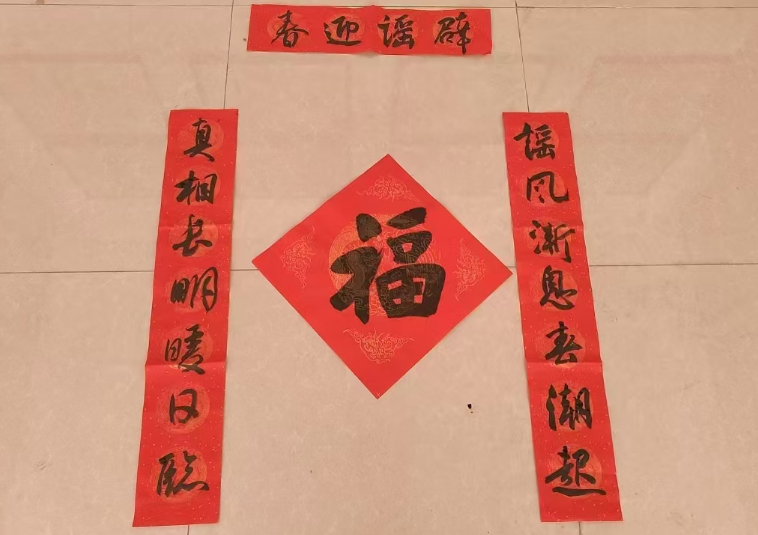 辟谣迎春
谣风渐息春潮起
福
真相长明暖日临